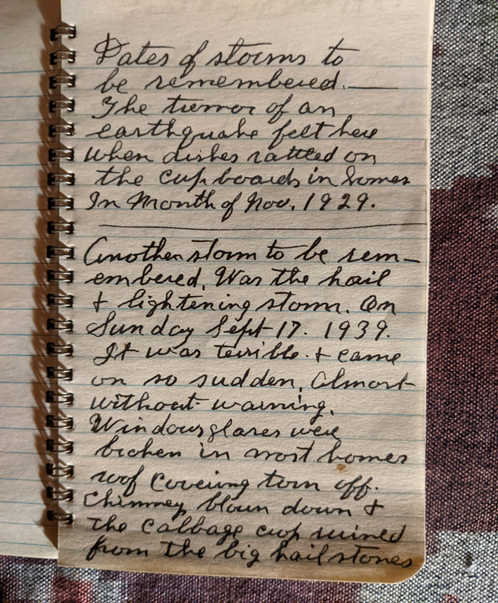 Dates of storms to
be remembered.
The tremor of an
earthquake felt here
when dishes rattled on
the cupboards in homes
In Month of Nov. 1929.
Another storm to be rem-
embered, Was the hail
& lightening storm. On
Sunday Sept 17. 1939.
It was terrible. & came
on so sudden, Almost
without warning.
Windowsglases were
broken in most homes
roof covering torn off.
Chimney blown down &
the Cabbage crop ruined
from the big hail stones